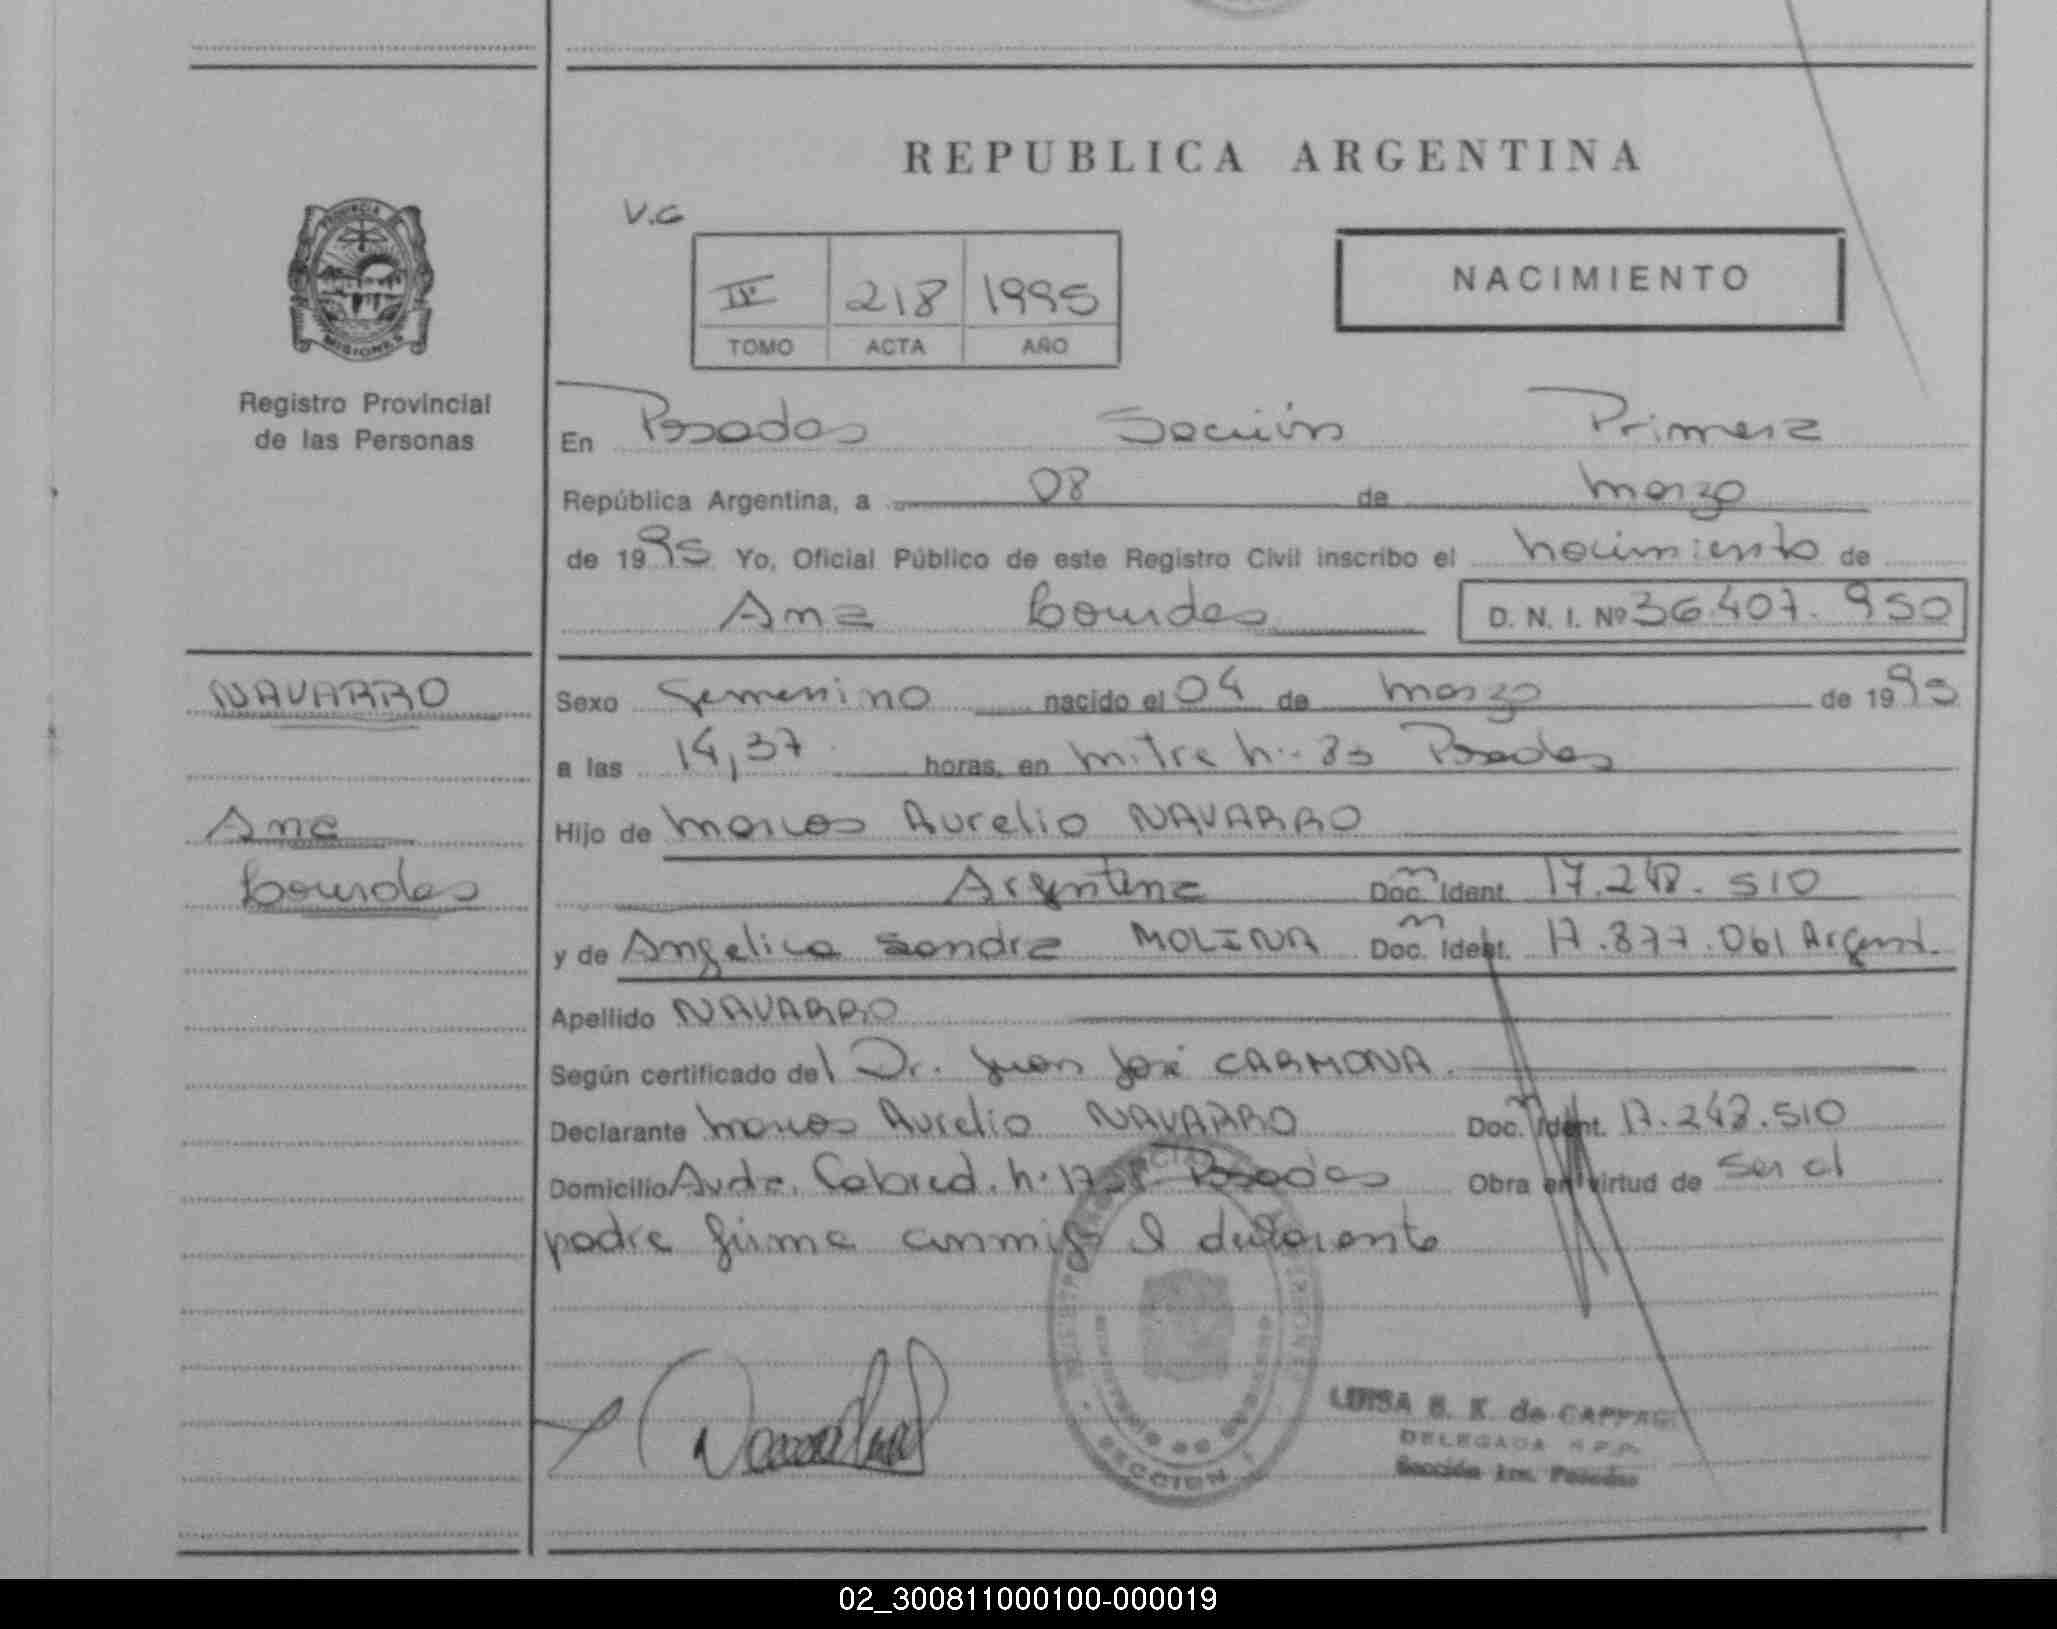 REPUBLICA ARGENTINA
V.G
IV 218 1995
TOMO ACTA AÑO
NACIMIENTO
PROVINCIA
MISIONES
Registro Provincial
de las Personas
En Posadas Sección Primera
República Argentina, a 08 de marzo
de 1995 Yo, Oficial Público de este Registro Civil inscribo el nacimiento de
Ana Lourdes D. N. I. Nº 36.407.950
NAVARRO
Ana
Lourdes
Sexo femenino nacido el 04 de marzo de 1995
a las 14,37 horas, en mitre n.- 83 Posadas
Hijo de Marcos Aurelio NAVARRO
Argentina Doc. Ident. 17.248.510
y de Angelica Sandra MOLINA Doc. Ident. 17.877.061 Argent.
Apellido NAVARRO
Según certificado del Dr. Juan José CARMONA.
Declarante Marcos Aurelio NAVARRO Doc. Ident. 17.248.510
Domicilio Avda. Cabred. n. Posadas Obra en virtud de ser el
padre firma conmigo el declarante
SECCION 1
LUISA B. K. de CAPPAG
DELEGADA R.P.P.
Sección 1ra. Posadas
02_300811000100-000019